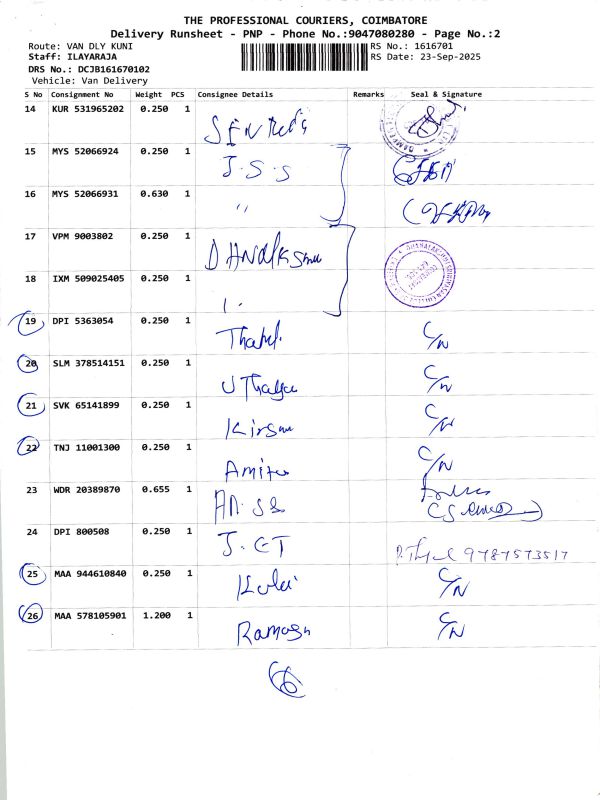 THE PROFESSIONAL COURIERS, COIMBATORE
Delivery Runsheet - PNP - Phone No.:9047080280 - Page No.:2
Route: VAN DLY KUNI RS No.: 1616701
Staff: ILAYARAJA RS Date: 23-Sep-2025
DRS No.: DCJB161670102
Vehicle: Van Delivery
S No Consignment No Weight PCS Consignee Details Remarks Seal & Signature
14 KUR 531965202 0.250 1
15 MYS 52066924 0.250 1 J.S.S
16 MYS 52066931 0.630 1 "
17 VPM 9003802 0.250 1
18 IXM 509025405 0.250 1
19 DPI 5363054 0.250 1 C/N
20 SLM 378514151 0.250 1 C/N
21 SVK 65141899 0.250 1 C/N
22 TNJ 11001300 0.250 1 C/N
23 WDR 20389870 0.655 1
24 DPI 800508 0.250 1 J.CT 9787573517
25 MAA 944610840 0.250 1 C/N
26 MAA 578105901 1.200 1 Ramesh C/N